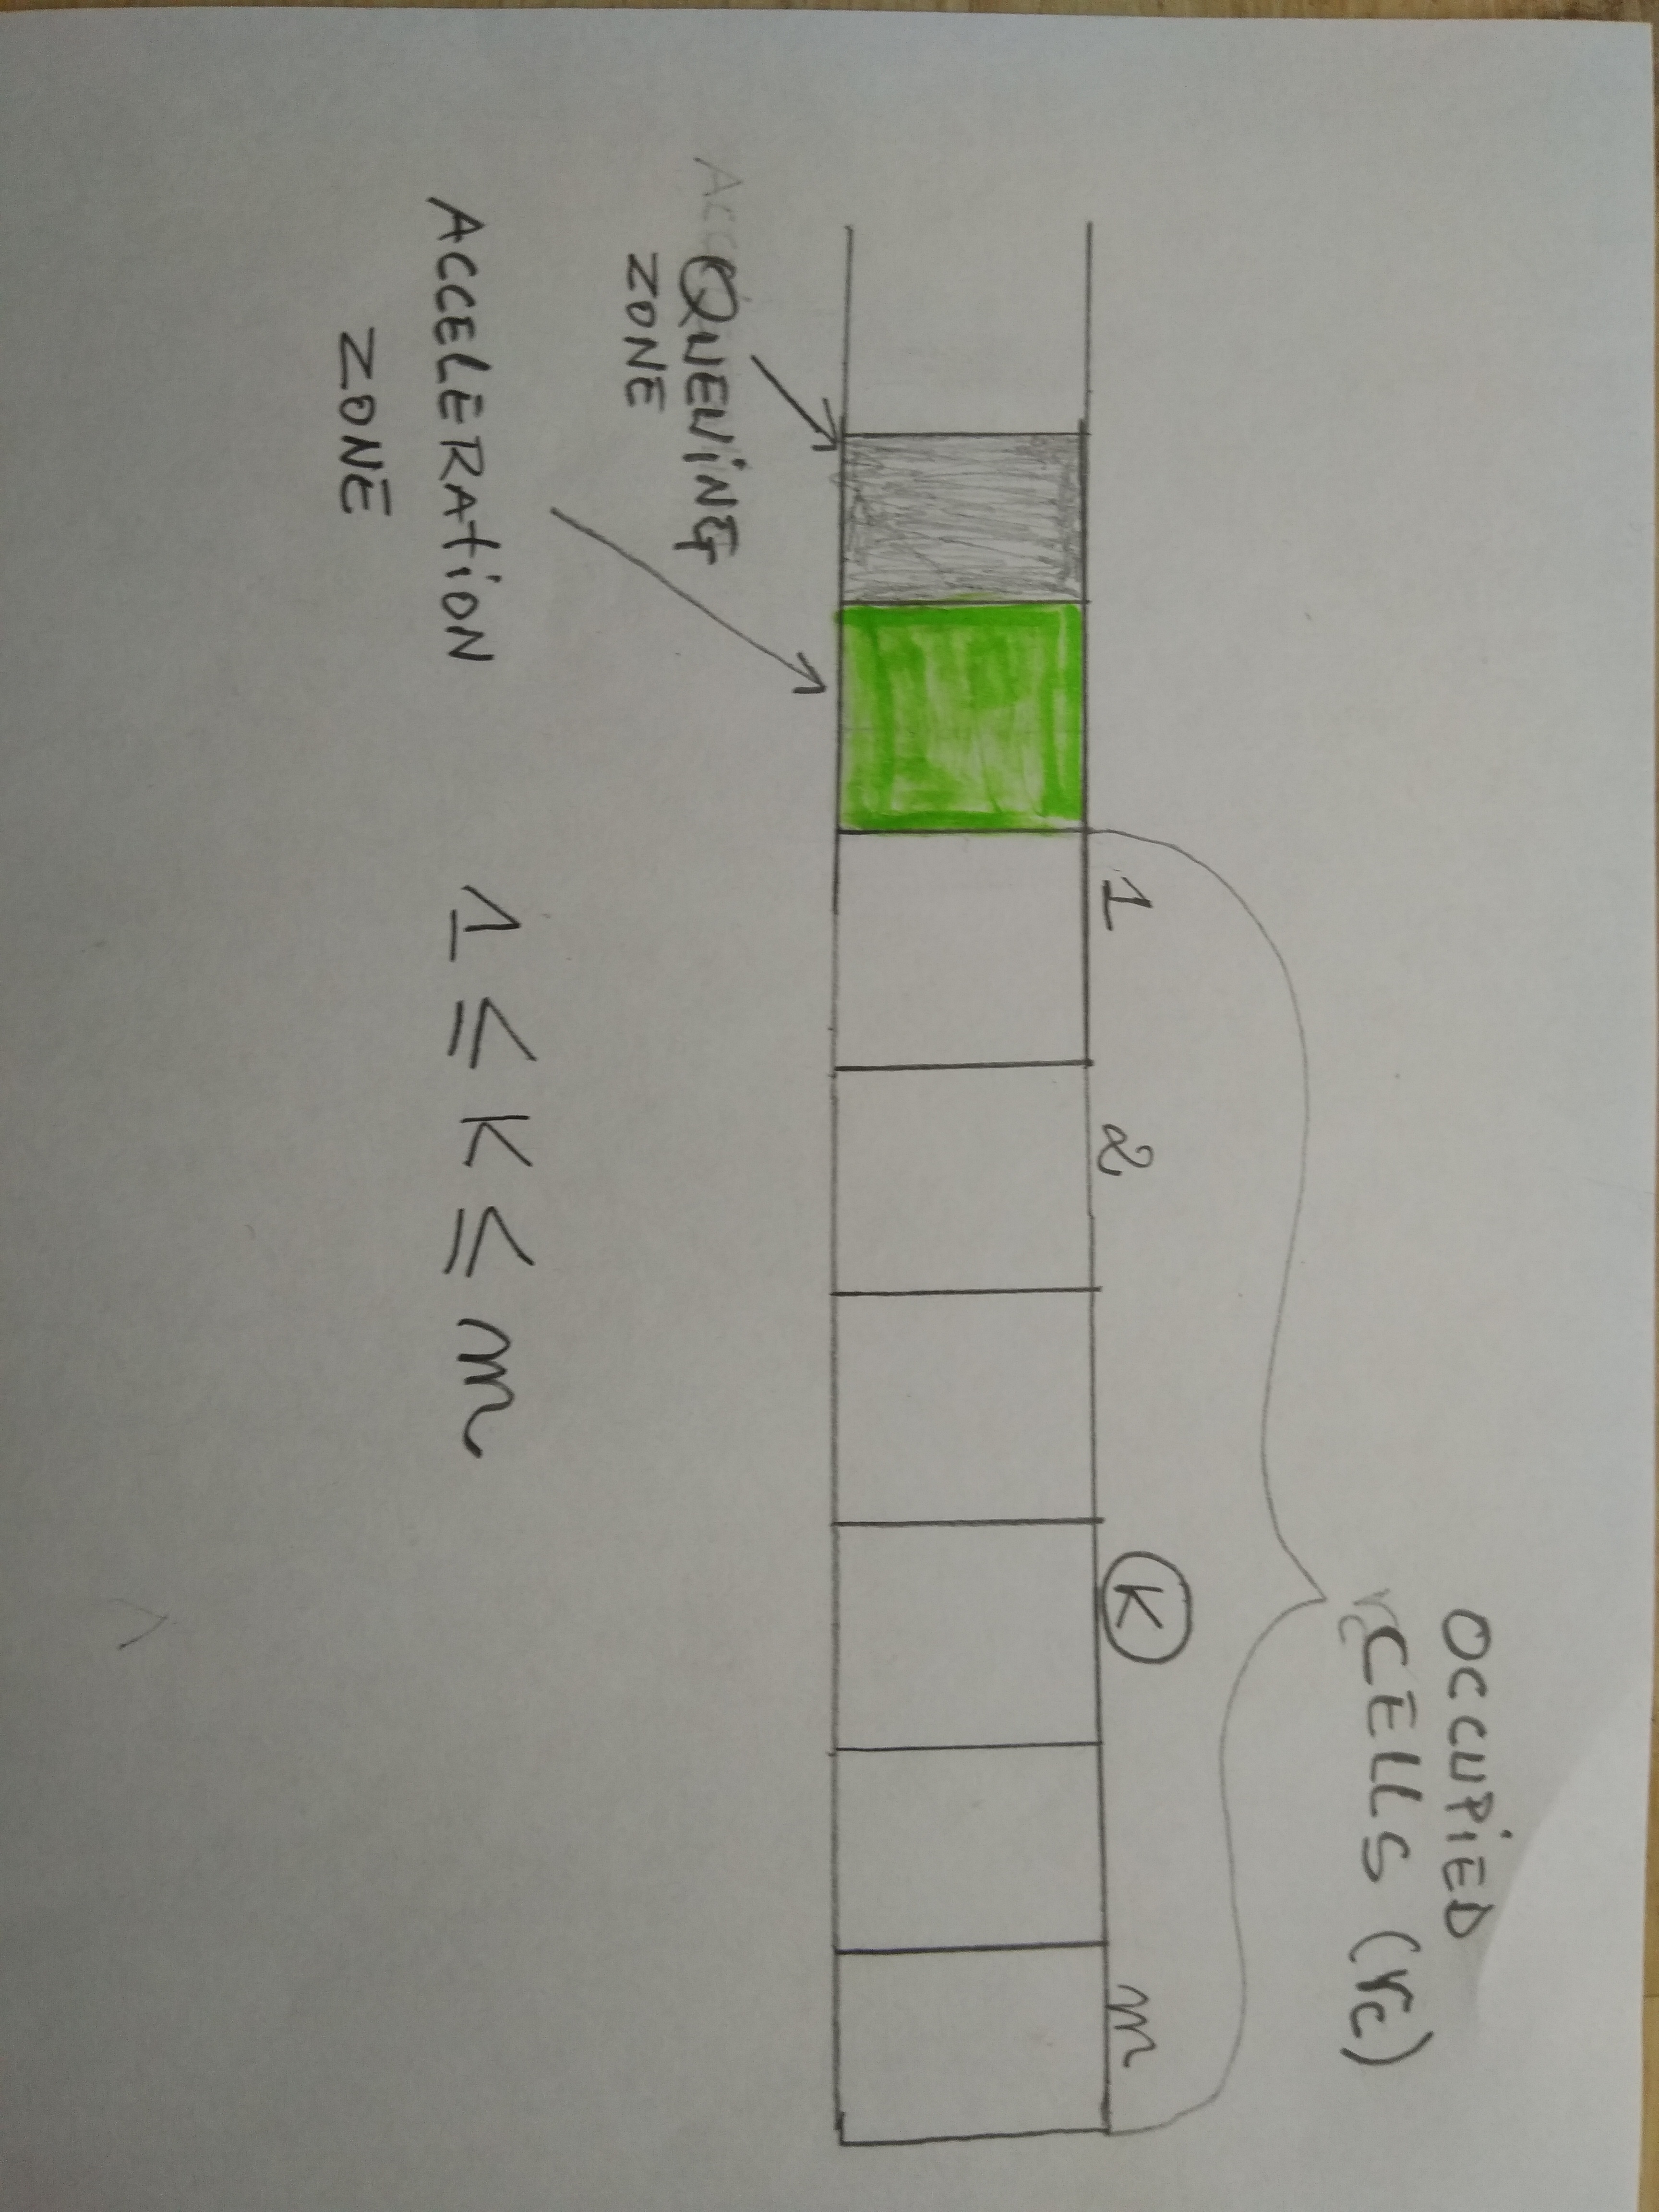 OCCUPiED
CELLS (rc)
1 2 K m
QUEUiNG
ZONE
ACCELERAtiON
ZONE
1 ≤ K ≤ m